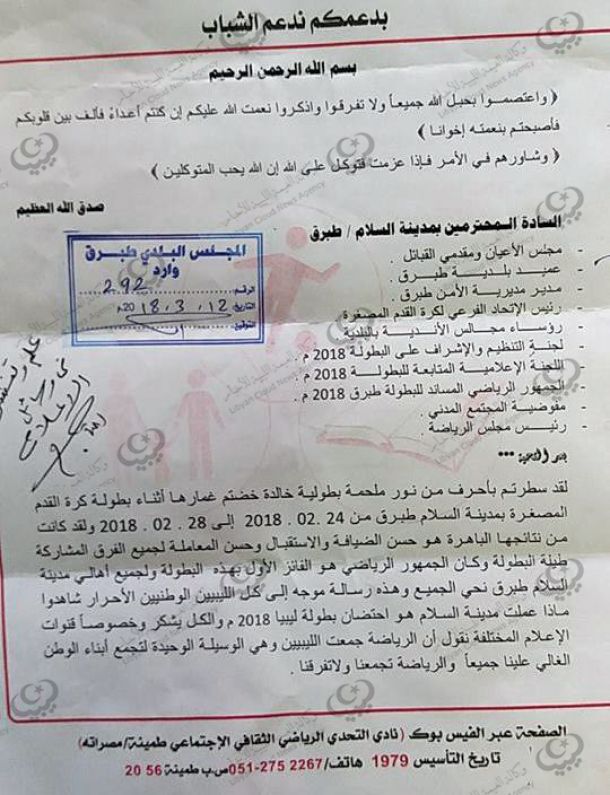 بدعمكم ندعم الشباب
بسم الله الرحمن الرحيم
﴿ واعتصموا بحبل الله جميعاً ولا تفرقوا واذكروا نعمت الله عليكم إن كنتم أعداءً فألف بين قلوبكم
فأصبحتم بنعمته إخوانا ﴾
﴿ وشاورهم في الأمر فإذا عزمت فتوكل على الله إن الله يحب المتوكلين ﴾
صدق الله العظيم
السادة المحترمين بمدينة السلام / طبرق
- مجلس الأعيان ومقدمي القبائل .
- عميد بلدية طبرق .
- مدير مديرية الأمن طبرق .
- رئيس الإتحاد الفرعي لكرة القدم المصغرة
- رؤساء مجالس الأندية بالبلدية
- لجنة التنظيم والإشراف على البطولة 2018 م .
- اللجنة الإعلامية المتابعة للبطولة 2018 م .
- الجمهور الرياضي المساند للبطولة طبرق 2018 م .
- مفوضية المجتمع المدني .
- رئيس مجلس الرياضة .
المجلس البلدي طبرق
وارد
الرقم 292
التاريخ 2018.3.12م
التوقيع
بعد التحية ***
لقد سطرتم بأحرف من نور ملحمة بطولية خالدة خضتم غمارها أثناء بطولة كرة القدم
المصغرة بمدينة السلام طبرق من 24 .02 .2018 إلى 28 .02 .2018 ولقد كانت
من نتائجها الباهرة هو حسن الضيافة والاستقبال وحسن المعاملة لجميع الفرق المشاركة
طيلة البطولة وكان الجمهور الرياضي هو الفائز الأول بهذه البطولة ولجميع أهالي مدينة
السلام طبرق نحي الجميع وهذه رسالة موجه إلى كل الليبيين الوطنيين الأحرار شاهدوا
ماذا عملت مدينة السلام هو احتضان بطولة ليبيا 2018 م والكل يشكر وخصوصاً قنوات
الإعلام المختلفة نقول أن الرياضة جمعت الليبيين وهي الوسيلة الوحيدة لتجمع أبناء الوطن
الغالي علينا جميعاً والرياضة تجمعنا ولاتفرقنا .
الصفحة عبر الفيس بوك ( نادي التحدي الرياضي الثقافي الإجتماعي طمينة/مصراته)
تاريخ التأسيس 1979 هاتف/2267 275-051ص.ب طمينة56 20